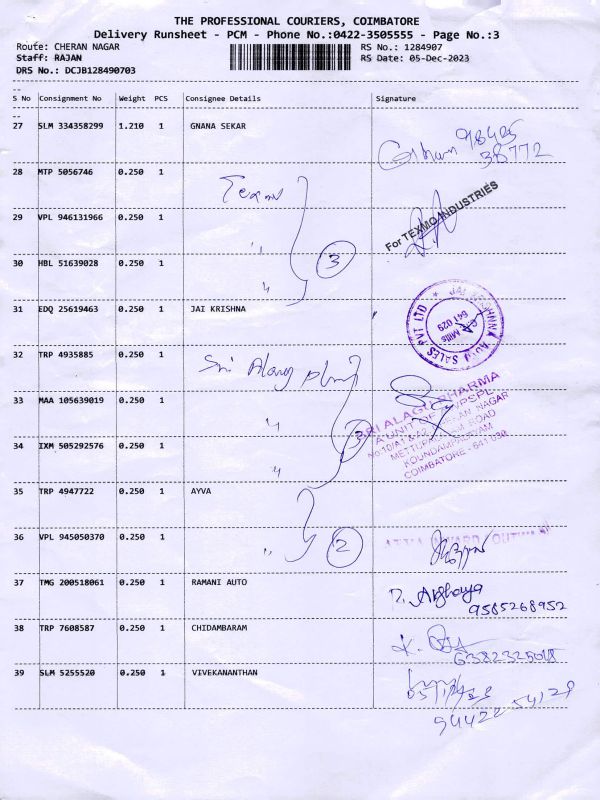 THE PROFESSIONAL COURIERS, COIMBATORE
Delivery Runsheet - PCM - Phone No.:0422-3505555 - Page No.:3
Route: CHERAN NAGAR RS No.: 1284907
Staff: RAJAN RS Date: 05-Dec-2023
DRS No.: DCJB128490703
S No Consignment No Weight PCS Consignee Details Signature
27 SLM 334358299 1.210 1 GNANA SEKAR
98425
38772
28 MTP 5056746 0.250 1
29 VPL 946131966 0.250 1
For TEXMO INDUSTRIES
30 HBL 51639028 0.250 1
3
31 EDQ 25619463 0.250 1 JAI KRISHNA
JAI KRISHNAA AUTO SALES PVT LTD
G.N. Mills
641 029
32 TRP 4935885 0.250 1
Sri Alagu
33 MAA 105639019 0.250 1
SRI ALAGU PHARMA
A UNIT OF
METTUPALAYAM ROAD
KOUNDAMPALAYAM
COIMBATORE - 641 030
34 IXM 505292576 0.250 1
3
35 TRP 4947722 0.250 1 AYVA
36 VPL 945050370 0.250 1
2
37 TMG 200518061 0.250 1 RAMANI AUTO
9585268952
38 TRP 7608587 0.250 1 CHIDAMBARAM
39 SLM 5255520 0.250 1 VIVEKANANTHAN
94422 54129